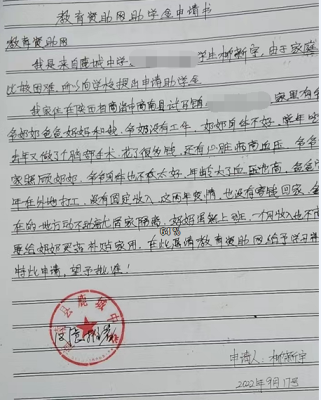 教育资助网助学金申请书
教育资助网
我是来自鹿城中学 学生柳新宇,由于家庭
比较困难,所以向学校提出申请助学金
我家住在陕西省商洛市商南县试马镇 家里有爷
爷奶奶爸爸妈妈和我,爷奶没有工作,奶奶身体不好,常年吃
去年又做了个肺部手术,花了很多钱,还有心脏病高血压,爷爷
家照顾奶奶,爷爷身体也不太好,年龄大了血压也高,爸爸
年在外地打工,没有固定收入,这两年疫情,也没有寄钱回家,
在的地行动不 忙居家隔离,妈妈虽然上班,一个月收入也不
要给奶奶买药补贴家用。在此恳请教育资助网给予
特此申请,望予批准!
61%
申请人:柳新宇
2022年9月17号